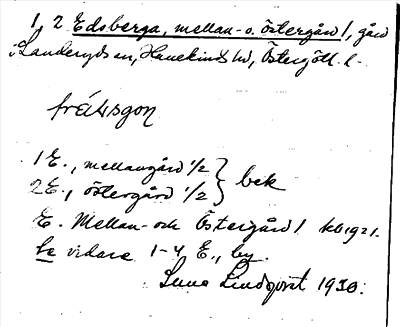 1, 2 Edsberga, mellan- o. östergård 1, gård
i Landeryds sn, Hanekinds hd, Östergötl. l.
frälsgon
1 E., mellangård 1/2 } bek
2 E., östergård 1/2
E. Mellan- och Östergård 1 kb 1921.
Se vidare 1-4 E., by.
Sune Lindqvist 1930.